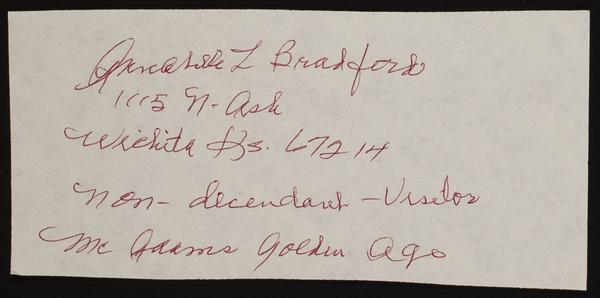 Annabelle L Bradford
1115 N. Ash
Wichita Ks. 67214
Non- decendant - Visitor
Mc Adams Golden Age